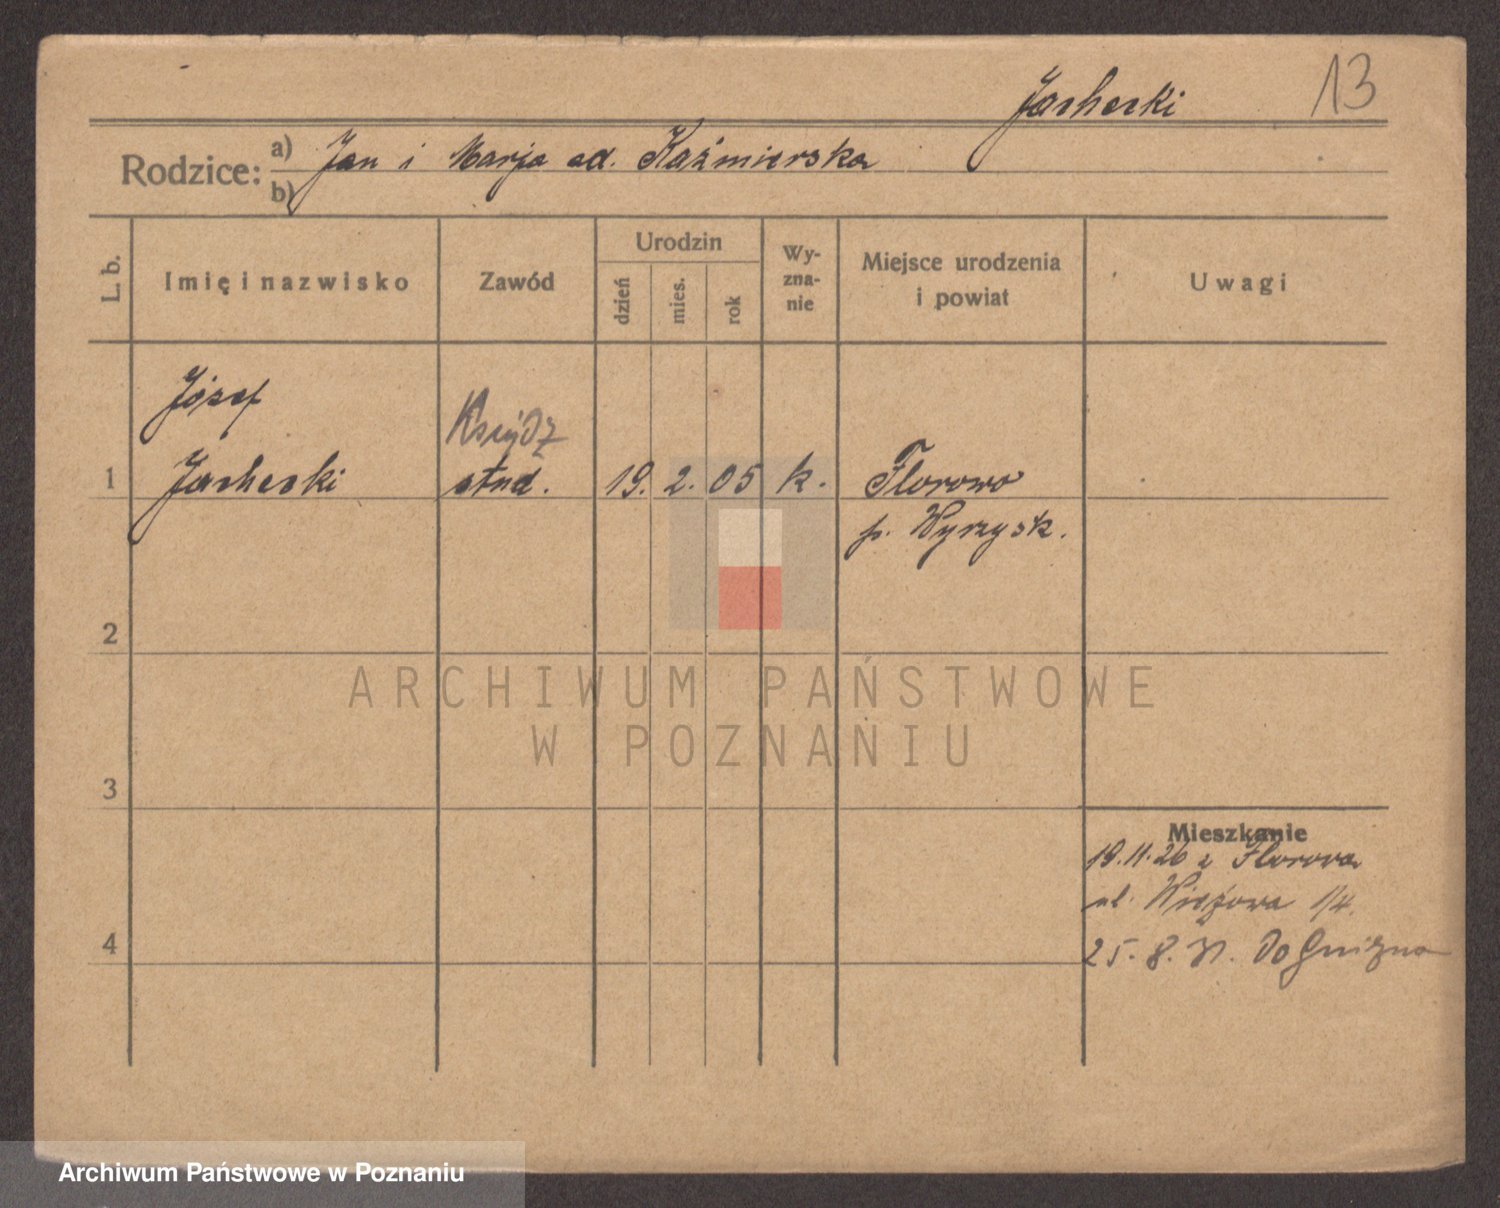 Jachecki 13
Rodzice: a) Jan i Marja od. Kaźmierska
b)
L. b. Imię i nazwisko Zawód Urodzin dzień mies. rok Wy-zna-nie Miejsce urodzenia i powiat Uwagi
Józef
Ksiądz
1 Jachecki stud. 19. 2. 05 k. Florowo
p. Wyrzysk.
2
ARCHIWUM PAŃSTWOWE
W POZNANIU
3
Mieszkanie
19.11.26 z Florowa
ul. Wieżowa 1/4.
4 25. 8. 31. do Gniezna
Archiwum Państwowe w Poznaniu